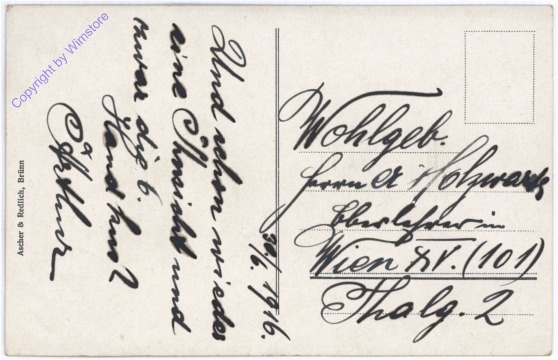 Copyright by Wimstore
Und schon wieder
eine Ansicht und
zwar die 6.
Arthur
30/6. 1916.
Ascher & Redlich, Brünn
Wohlgeb.
Herrn A Holzwarth
Oberlehrer in
Wien XV. (101)
Thalg. 2